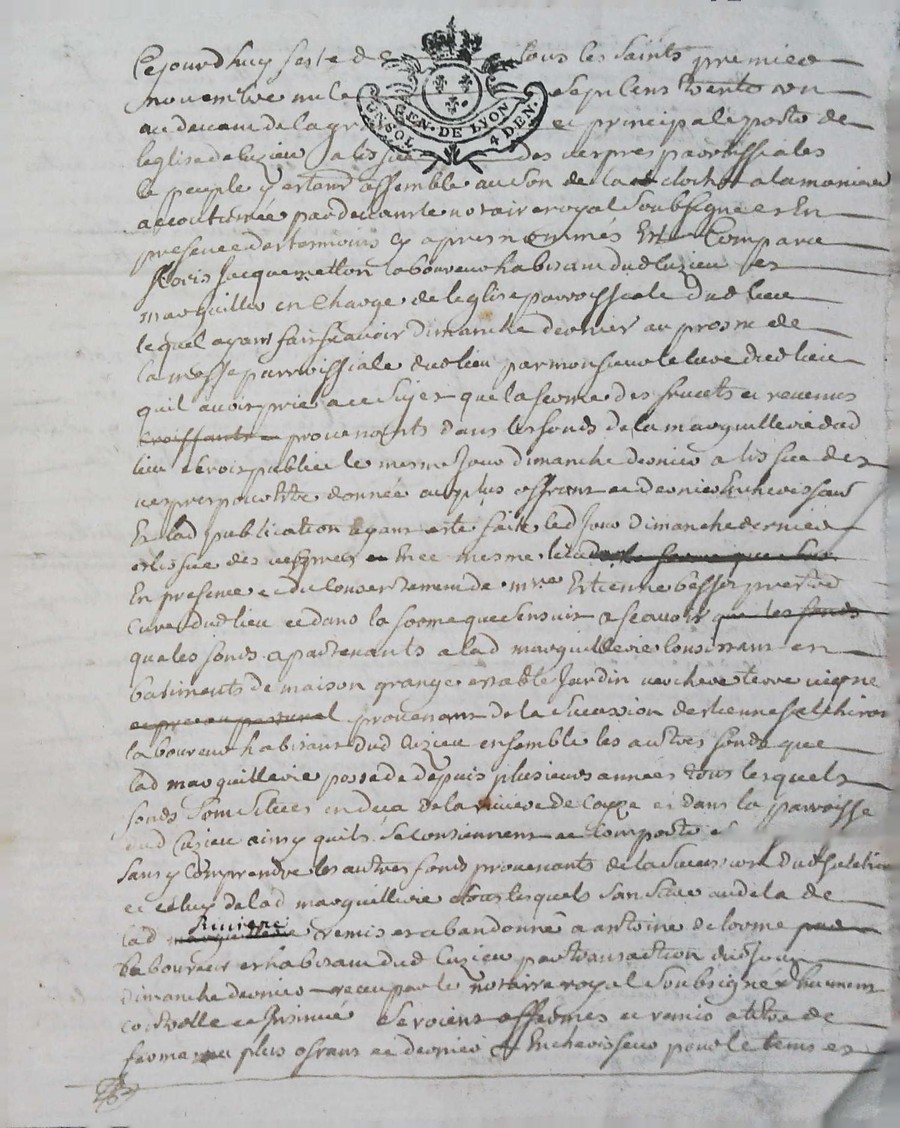 Cejourdhuy feste de tous les Saints premier
novembre mil sept cens trente un
GEN. DE LYON
UN SOL 4 DEN.
au devant de la grande et principale porte de
leglise de Cuzieu a lissue des vespres parroissiales
le peuple y estant assemblé au son de la cloche a la maniere
accoutumée pardevant le notaire royal soubsigné et En
presence des temoins cy apres nommés Est Comparu
Jacque laboureur habitant dud Cuzieu et
marguillier en Charge de leglise parroissiale dud lieu
lequel ayant fait scavoir dimanche dernier au prosne de
la messe parroissiale dud lieu par monsieur le Curé dud lieu
quil avoit prié a ce sujet que la ferme des fruits et revenus
croissants en provenants dans les fonds de la marguillerie dud
lieu seroit publiée le mesme Jour dimanche dernier a lissue des
vespres pour estre donnée au plus offrant et dernier Encherisseur
Et lad publication ayant esté faite led Jour dimanche dernier
et issue des vespres en mesme
En presence et du Consentement de mre Estienne Besson prestre
Curé dud lieu et dans la forme que sensuit a scavoir que les fonds
que les fonds apartenants a lad marguillerie Consistant en
batiments de maison grange estable Jardin verchere terre vigne
provenant de la sucession destienne
laboureur habitant dud Cuzieu ensemble les autres fonds que
lad marguillerie possede depuis plusieurs années tous lesquels
fonds sont situés en deça de la riviere de Coyze et dans la parroisse
dud Cuzieu ainsy quils se Contiennent et Comporte
sans y Comprendre les autres fonds provenants de la sucession dud
et celuy de lad marguillerie tous lesquels sont situé au dela de
Riviere
lad marguillerie remis et abandonné a antoine delorme
laboureur et habitant dud Cuzieu par transaction dud Jour
dimanche dernier receu par le notaire royal soubsigné
controllé et Insinué seroient affermés et remis a titre de
ferme au plus ofrant et dernier Encherisseur pour le tems et